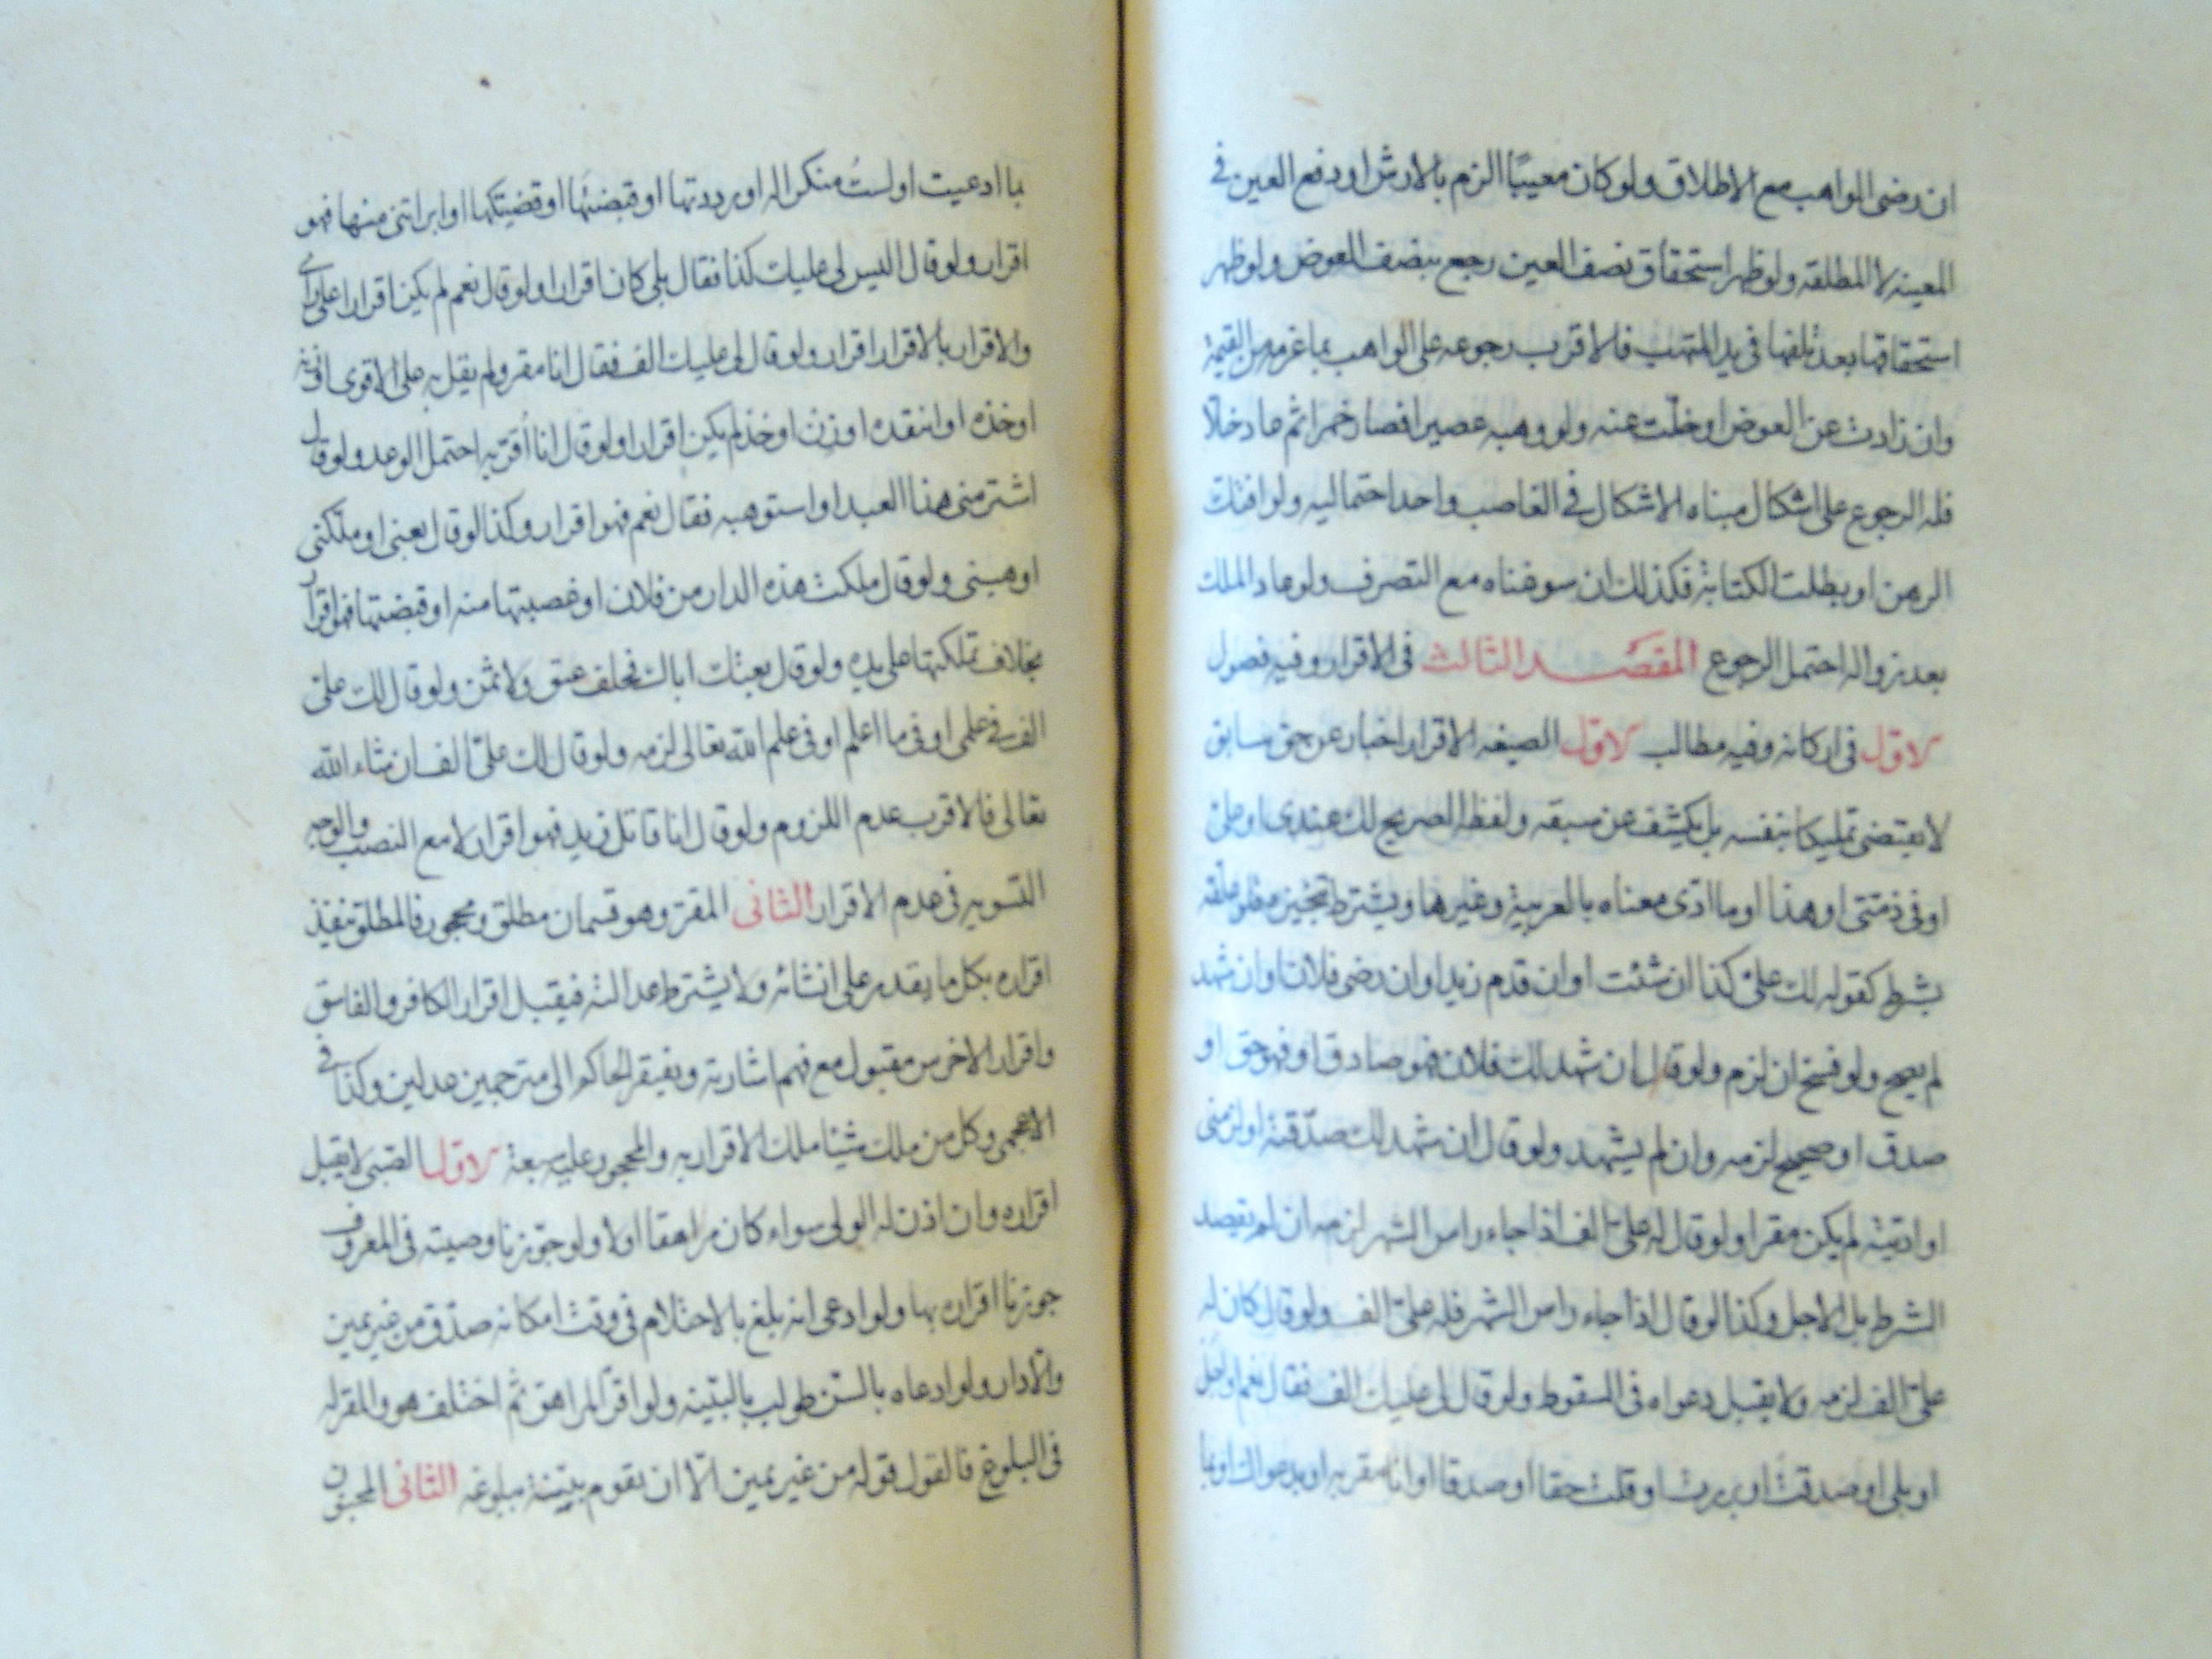 ان رضى الواهب مع الاطلاق ولو كان معيبًا الزم بالارش او دفع العين في
المعينه لا المطلقه ولو ظهر استحقاق نصف العين رجع بنصف العوض ولو ظهر
استحقاقها بعد تلفها في يد المتهب فالاقرب رجوعه على الواهب بما غرمه من القيمة
وان زادت عن العوض او خلت عنه ولو وهبه عصيرا فصار خمرا ثم عاد خلا
فله الرجوع على اشكال مبناه الاشكال في الغاصب واحد احتماليه ولو انفك
الرهن او بطلت الكتابة فكذلك ان سوغناه مع التصرف ولو عاد الملك
بعد زواله احتمل الرجوع المقصد الثالث في الاقرار وفيه فصول
الاول في اركانه وفيه مطالب الاول الصيغه الاقرار اخبار عن حق سابق
لا يقتضى تمليكا بنفسه بل يكشف عن سبقه ولفظه الصريح لك عندى او على
او في ذمتى او هذا او ما ادى معناه بالعربية وغيرها ويشترط تنجيزه فلو علقه
بشرط كقوله لك على كذا ان شئت او ان قدم زيد او ان رضى فلان او ان شهد
لم يصح ولو فتح ان لزم ولو قال ان شهد لك فلان فهو صادق او فهو حق او
صدق او صحيح لزمه وان لم يشهد ولو قال ان شهد لك صدقته او لزمنى
او اديته لم يكن مقرا ولو قال له على الف اذا جاء راس الشهر لزمه ان لم يقصد
الشرط بل الاجل وكذا لو قال اذا جاء راس الشهر فله على الف ولو قال كان له
على الف لزمه ولا يقبل دعواه في السقوط ولو قال لى عليك الف فقال نعم او اجل
او بلى او صدقت او بررت او قلت حقا او صدقا او انا مقر به او بدعواك او بما
بما ادعيت او لستُ منكرا له او رددتها او قبضتها او قضيتكها او ابراتنى منها فهو
اقرار ولو قال اليس لى عليك كذا فقال بلى كان اقرارا ولو قال نعم لم يكن اقرارا على راى
والاقرار بالاقرار اقرار ولو قال لى عليك الف فقال انا مقر ولم يقل به على الاقوى او زنه
او خذه او انتقده او زن او خذ لم يكن اقرارا ولو قال انا اُقر به احتمل الوعد ولو قال
اشتر منى هذا العبد او استوهبه فقال نعم فهو اقرار وكذا لو قال بعنى او ملكنى
او هبنى ولو قال ملكت هذه الدار من فلان او غصبتها منه او قبضتها فهو اقرار
بخلاف تملكتها على يده ولو قال بعتك اباك فحلف عتق ولا ثمن ولو قال لك على
الف في علمى او في ما اعلم او في علم الله تعالى لزمه ولو قال لك علىّ الف ان شاء الله
تعالى فالاقرب عدم اللزوم ولو قال انا قاتل زيد فهو اقرار لا مع النصب والوجه
التسويه في عدم الاقرار الثانى المقر وهو قسمان مطلق ومحجور فالمطلق ينفذ
اقراره بكل ما يقدر على انشائه ولا يشترط عدالته فيقبل اقرار الكافر والفاسق
واقرار الاخرس مقبول مع فهم اشارته ويفتقر الحاكم الى مترجمين عدلين وكذا في
الاعجمى وكل من ملك شيئا ملك الاقرار به والمحجور عليه سبعة الاول الصبى لا يقبل
اقراره وان اذن له الولى سواء كان مراهقا اولا ولو جوزنا وصيته في المعروف
جوزنا اقراره بها ولو ادعى انه بلغ بالاحتلام في وقت امكانه صدّق من غير يمين
والا دار ولو ادعاه بالسن طولب بالبينه ولو اقر المراهق ثم اختلف هو والمقر له
في البلوغ فالقول قوله من غير يمين الّا ان تقوم بينة ببلوغه الثانى المجنون